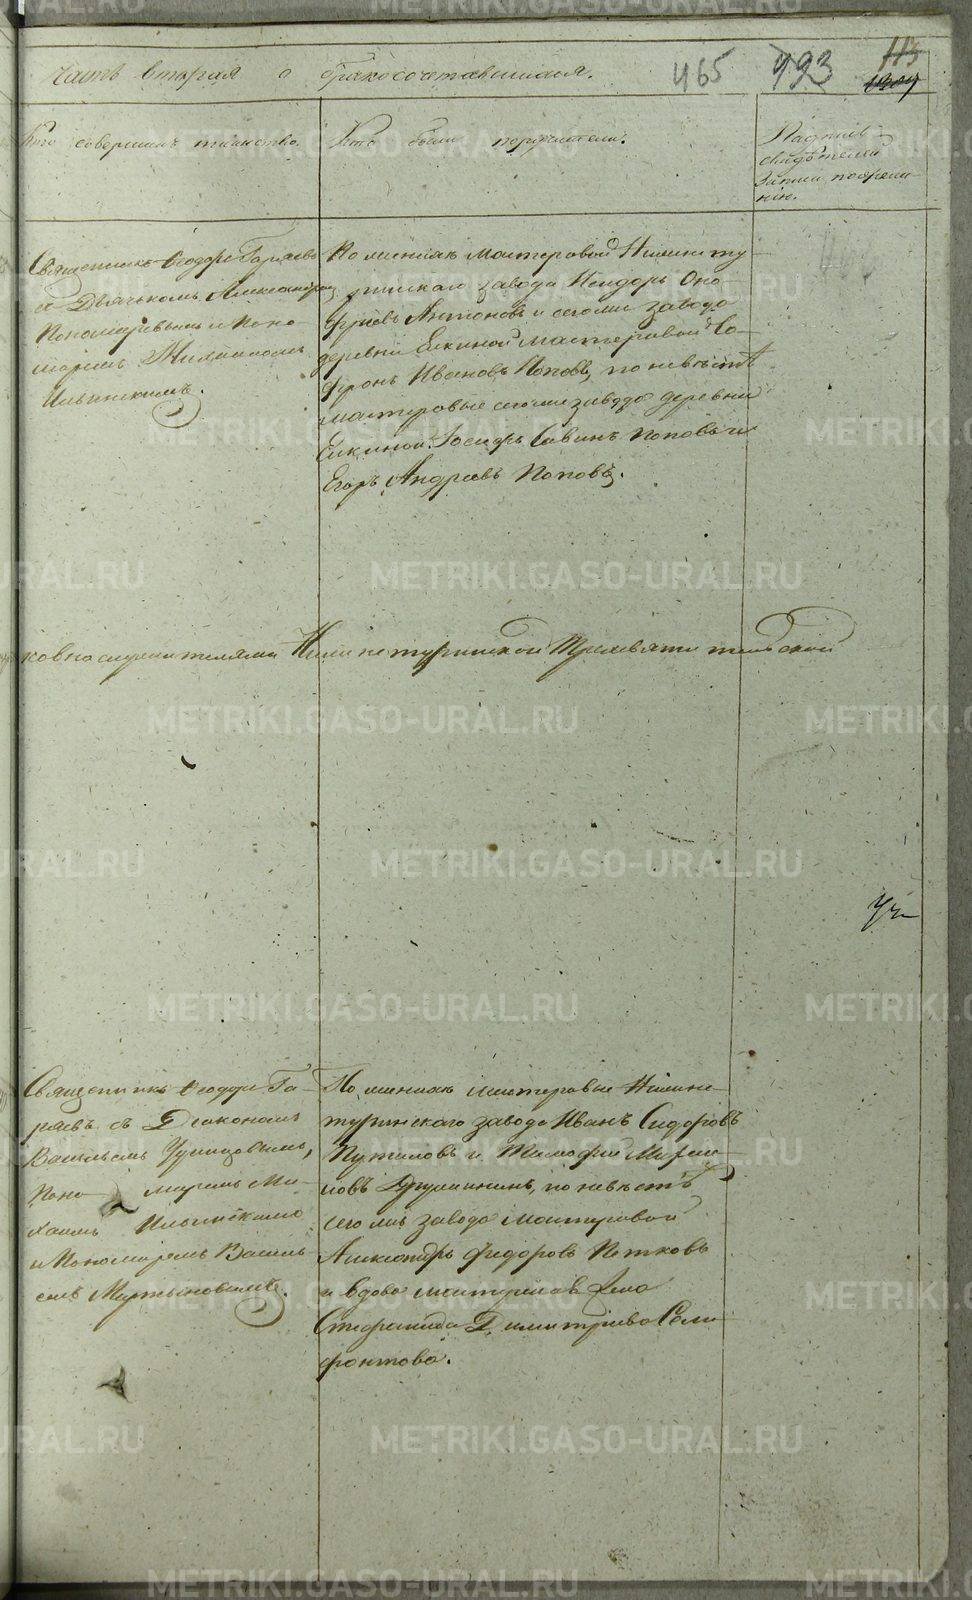 Часть вторая о бракосочетавшихся.
465 493 113
Кто совершилъ таинство.
Кто были поручители.
Подпись
свидѣтелей
записи по желанію
нію.
Священникъ Ѳеодоръ Гаряевъ
съ Дьячкомъ Александромъ
Пономаревымъ и Поно-
маремъ Михаиломъ
Ильинскимъ.
По женихѣ мастеровой Нижнету-
ринскаго завода Исидоръ Оно-
фріевъ Антоновъ и сегоже завода
деревни Елкиной мастеровой Со-
фронъ Ивановъ Поповъ, по невѣстѣ
мастеровые сегоже завода деревни
Елкиной Савинъ Поповъ и
Егоръ Андреевъ Поповъ.
ковнослужителями Нижнетуринской Трехсвятительской
Священникъ Ѳеодоръ Га-
ряевъ съ Діакономъ
Васильемъ
Поно- маремъ Ми-
хаиломъ Ильинскимъ
и Пономаремъ Василь-
емъ Мартыновымъ.
По женихѣ мастеровые Нижне-
туринскаго завода Иванъ Сидоровъ
Путиловъ и Тимофей
по невѣстѣ
сегоже завода мастеровой
Александръ Федоровъ Потковъ
и вдова мастероваго жена
Стефанида Димитріева Сели-
фонтова.
METRIKI.GASO-URAL.RU